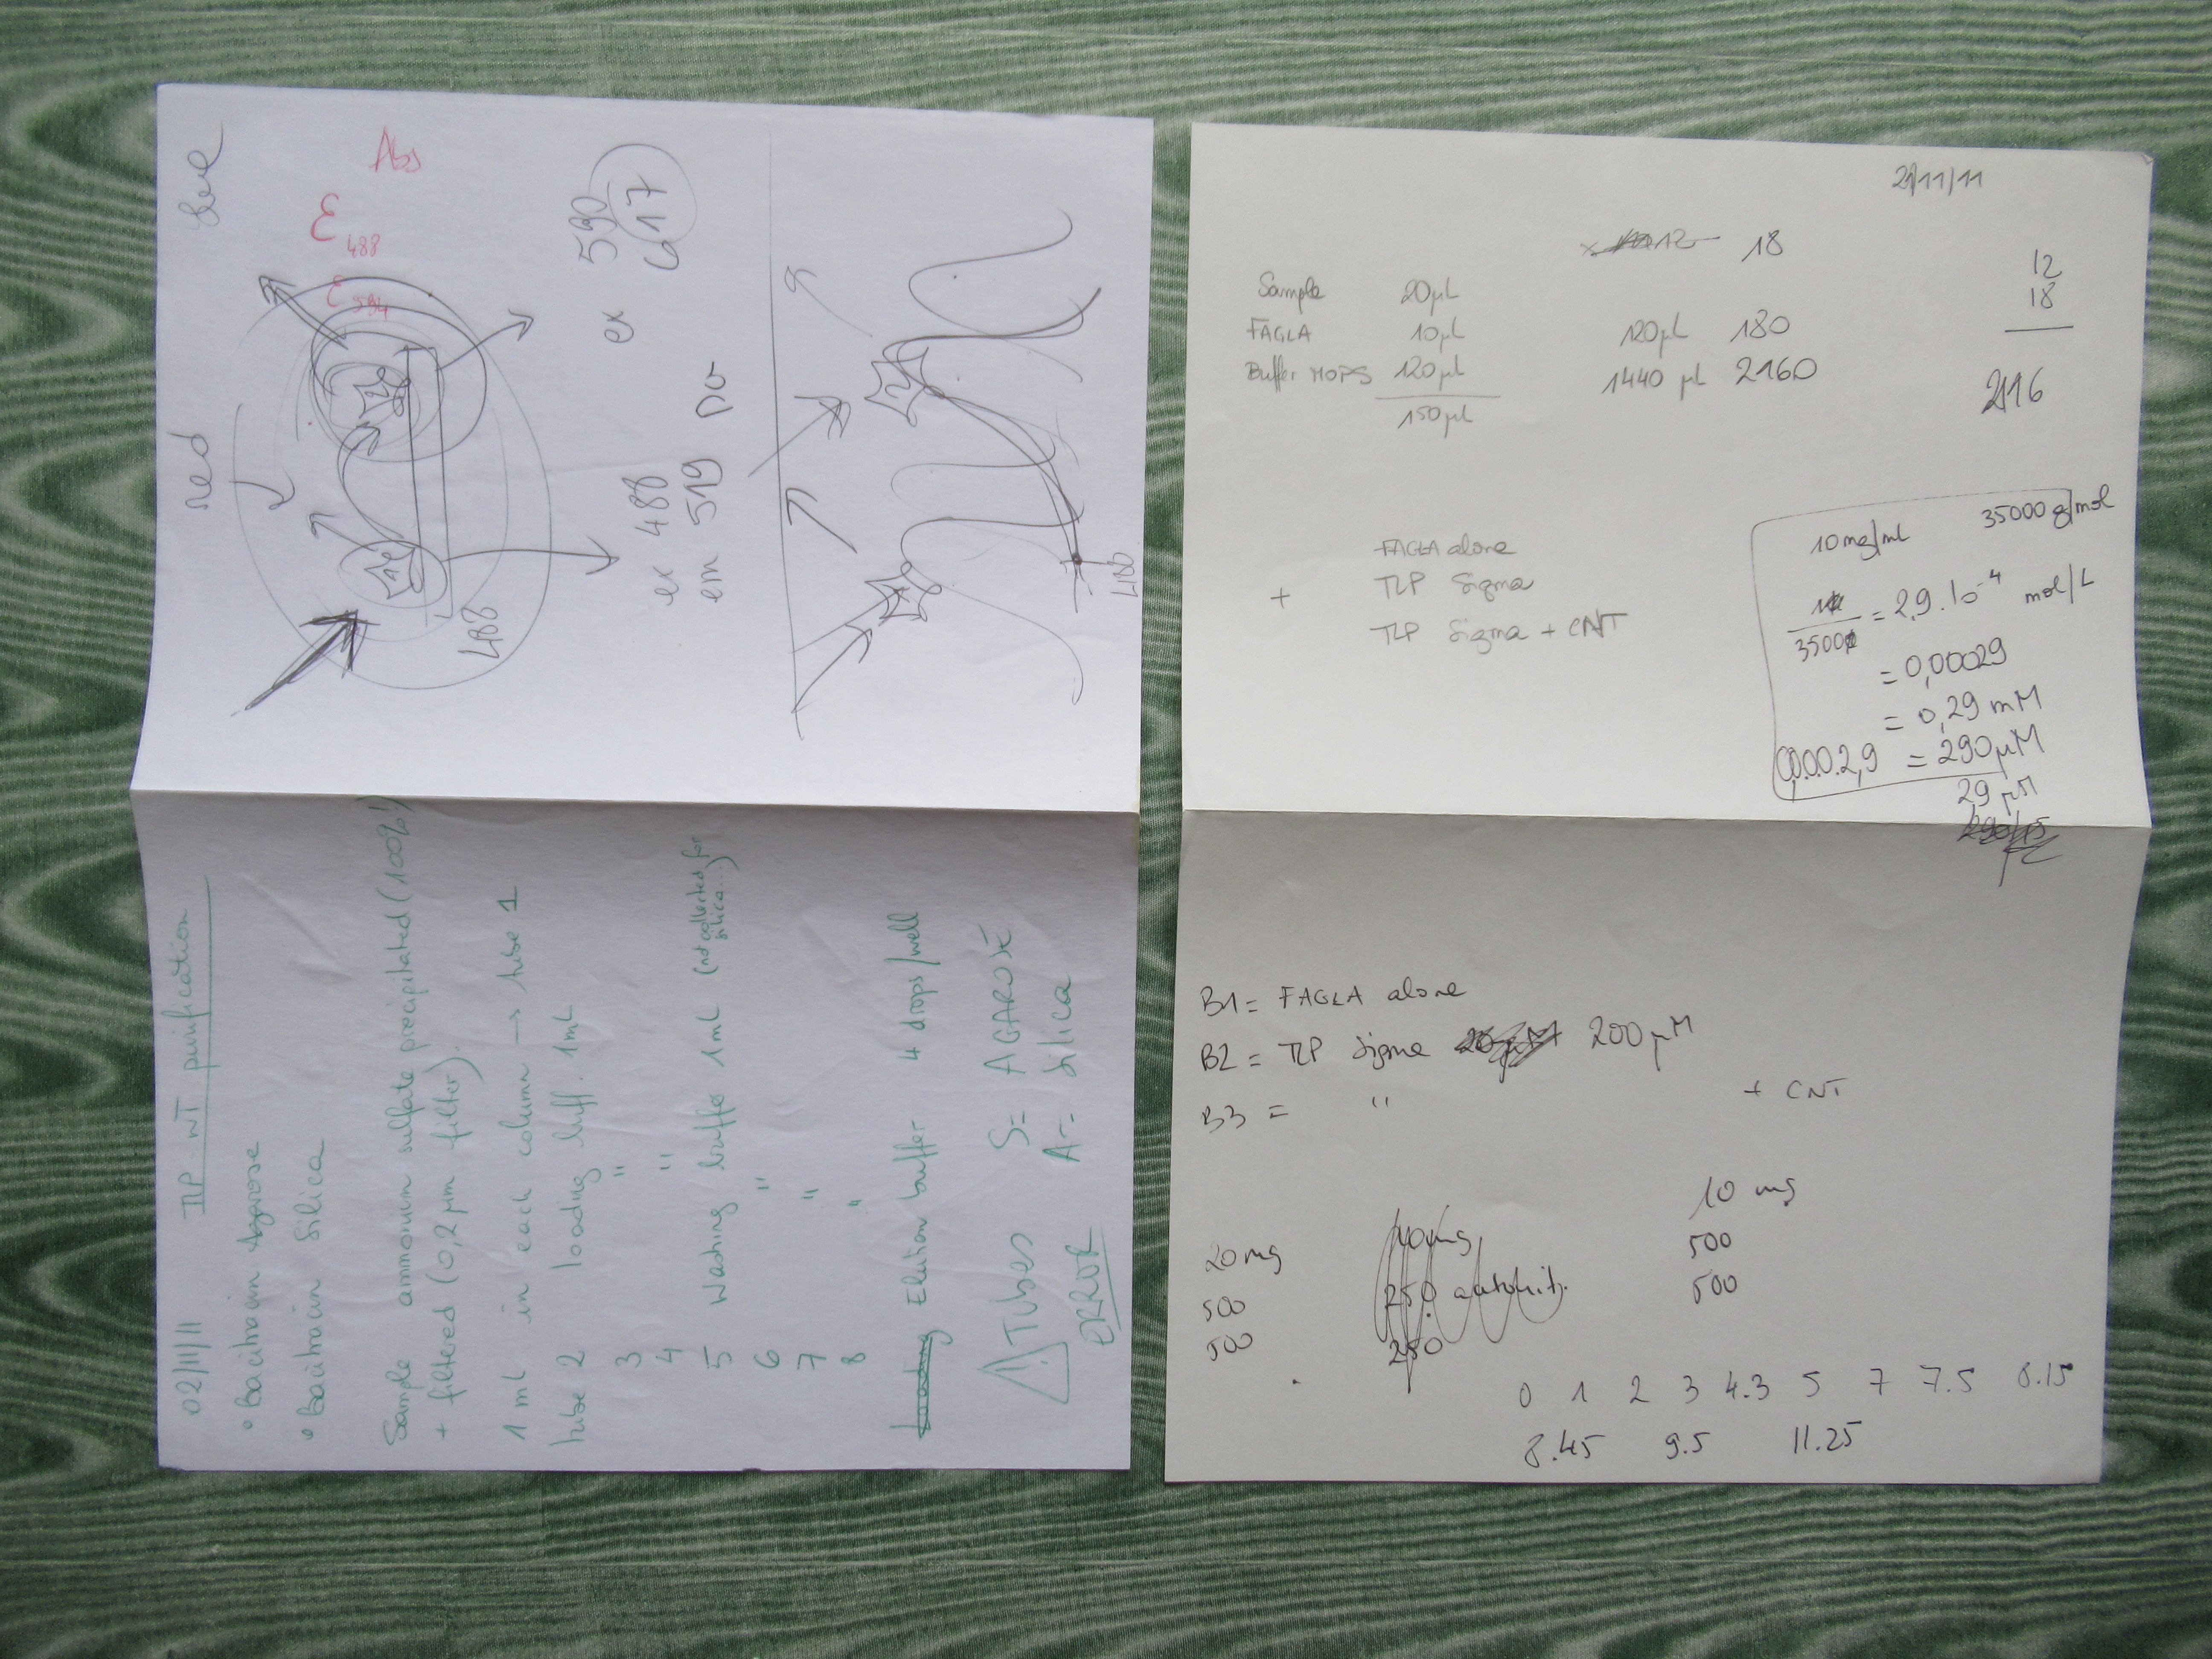 02/11/11 TLP-WT purification
• Bacitracin Agarose
• Bacitracin Silica
Sample ammonium sulfate precipitated (100%)
+ filtered (0,2 µm filter)
1 ml in each column → tube 1
tube 2 loading buff. 1mL
3 "
4 "
5 Washing buffer 1mL (not collected for silica...)
6 "
7 "
8 "
Elution buffer 4 drops/well
! Tubes S= AGAROSE
ERROR A= Silica
red
Abs
ε 488
ε 594
488
ex 488
em 519
ex 590
617
488
21/11/11
12 18
Sample 20µL
FAGLA 10µL 120µL 180
Buffer MOPS 120µL 1440 µL 2160
150µL
12
18
2116
+ FAGLA alone
TLP Sigma
TLP Sigma + CNT
10mg/ml 35000 g/mol
10/35000 = 2,9.10⁻⁴ mol/L
= 0,00029
= 0,29 mM
0,00.2,9 = 290µM
29 µM
B1= FAGLA alone
B2 = TLP Sigma 200µM
B3 = " + CNT
20mg 10mg 10 mg
500 250 500
500 250 500
0 1 2 3 4.3 5 7 7.5 8.15
8.45 9.5 11.25